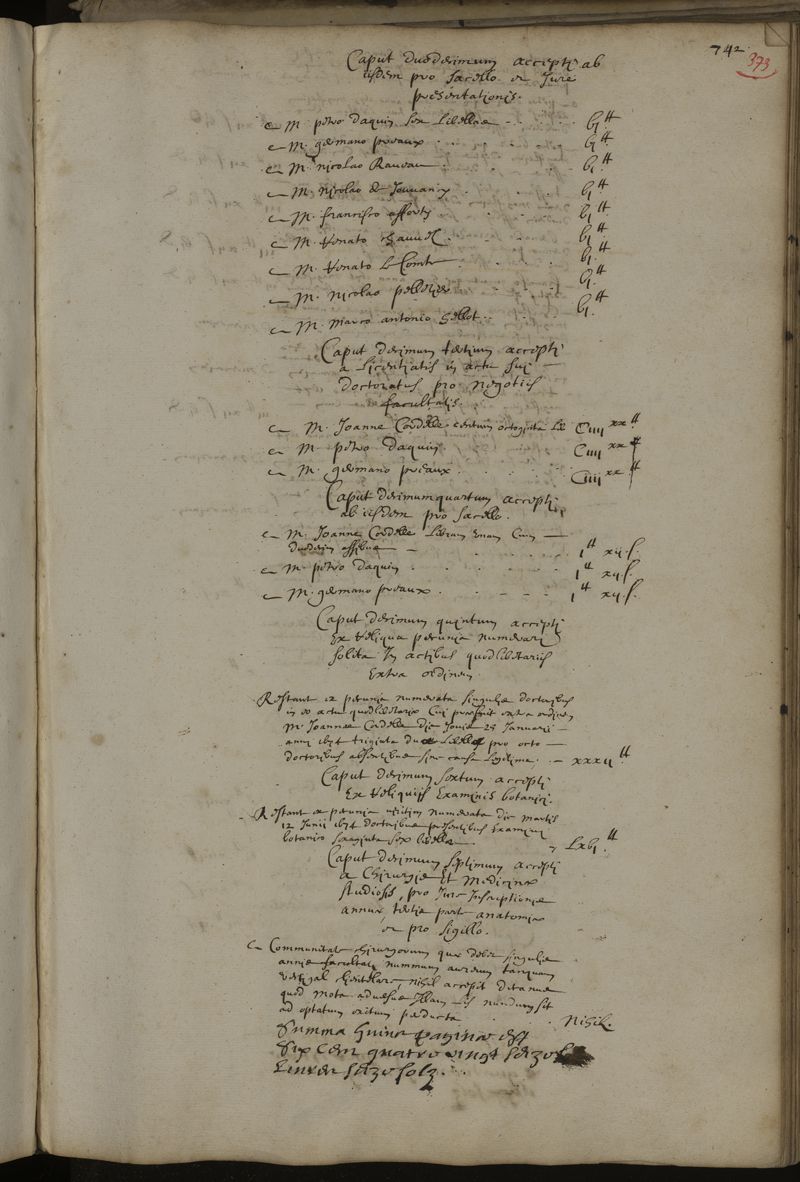 742
373
Caput duodecimum accepti ab
iisdem pro sacello et Jure
praesentationis.
a M. petro daquin sex libellae vj ₶
a M. germano preaux vj ₶
a M. nicolao Raueau vj ₶
a M. Nicolao de Jouuancy vj ₶
a M. francisco afforty vj ₶
a M. Renato chauuel vj ₶
a M. Renato Le Comte vj ₶
a M. Nicolao pelletier vj ₶
a M. Marco antonio Gellot vj ₶
Caput decimum tertium accepti
a Licentiatis in actu sui
doctoratus pro negotiis
facultatis.
a M. Joanne Cordelle centum octoginta lib Ciiij xx ₶
a M. petro daquin Ciiij xx ₶
a M. germano preaux Ciiij xx ₶
Caput decimum quartum accepti
ab iisdem pro sacello.
a M. Joanne Cordelle libram unam Cum
duodecim assibus j ₶ xij s.
a M. petro daquin j ₶ xij s.
a M. germano preaux j ₶ xij s.
Caput decimum quintum accepti
ex reliqua pecunia numerari
solita In actibus quodlibetariis
Extra ordinem.
Restant ex pecunia numerata singulis doctoribus
in eo actu quodlibetario Cui praefuit extra ordinem
M. Joannes Cordelle die Jouis 25 Januarii
anni 1674 triginta duae libellae pro octo
doctoribus absentibus sine causa legitima. xxxij ₶
Caput decimum sextum accepti
Ex reliquiis Examinis botanici.
Restant ex pecunia numerata die martis
12 Junii 1674 doctoribus praesentibus Examini
botanico sexaginta sex libellae. Lxvj ₶
Caput decimum septimum accepti
a Chirurgiae Et Medicinae
studiosis, pro Jure Inscriptionis
annuae, tertia parte anatomiae
et pro sigillo.
a Communitate chirurgorum quae debet singulis
annis facultati nummum aureum tanquam
vectigal clientelare, nihil accepit decanus
quod mota aduersus Illam lis nundum sit
ad optatum exitum perducta. Nihil.
Summa huius paginae est
Six cens quatre vingt seize
Liures seize solz.